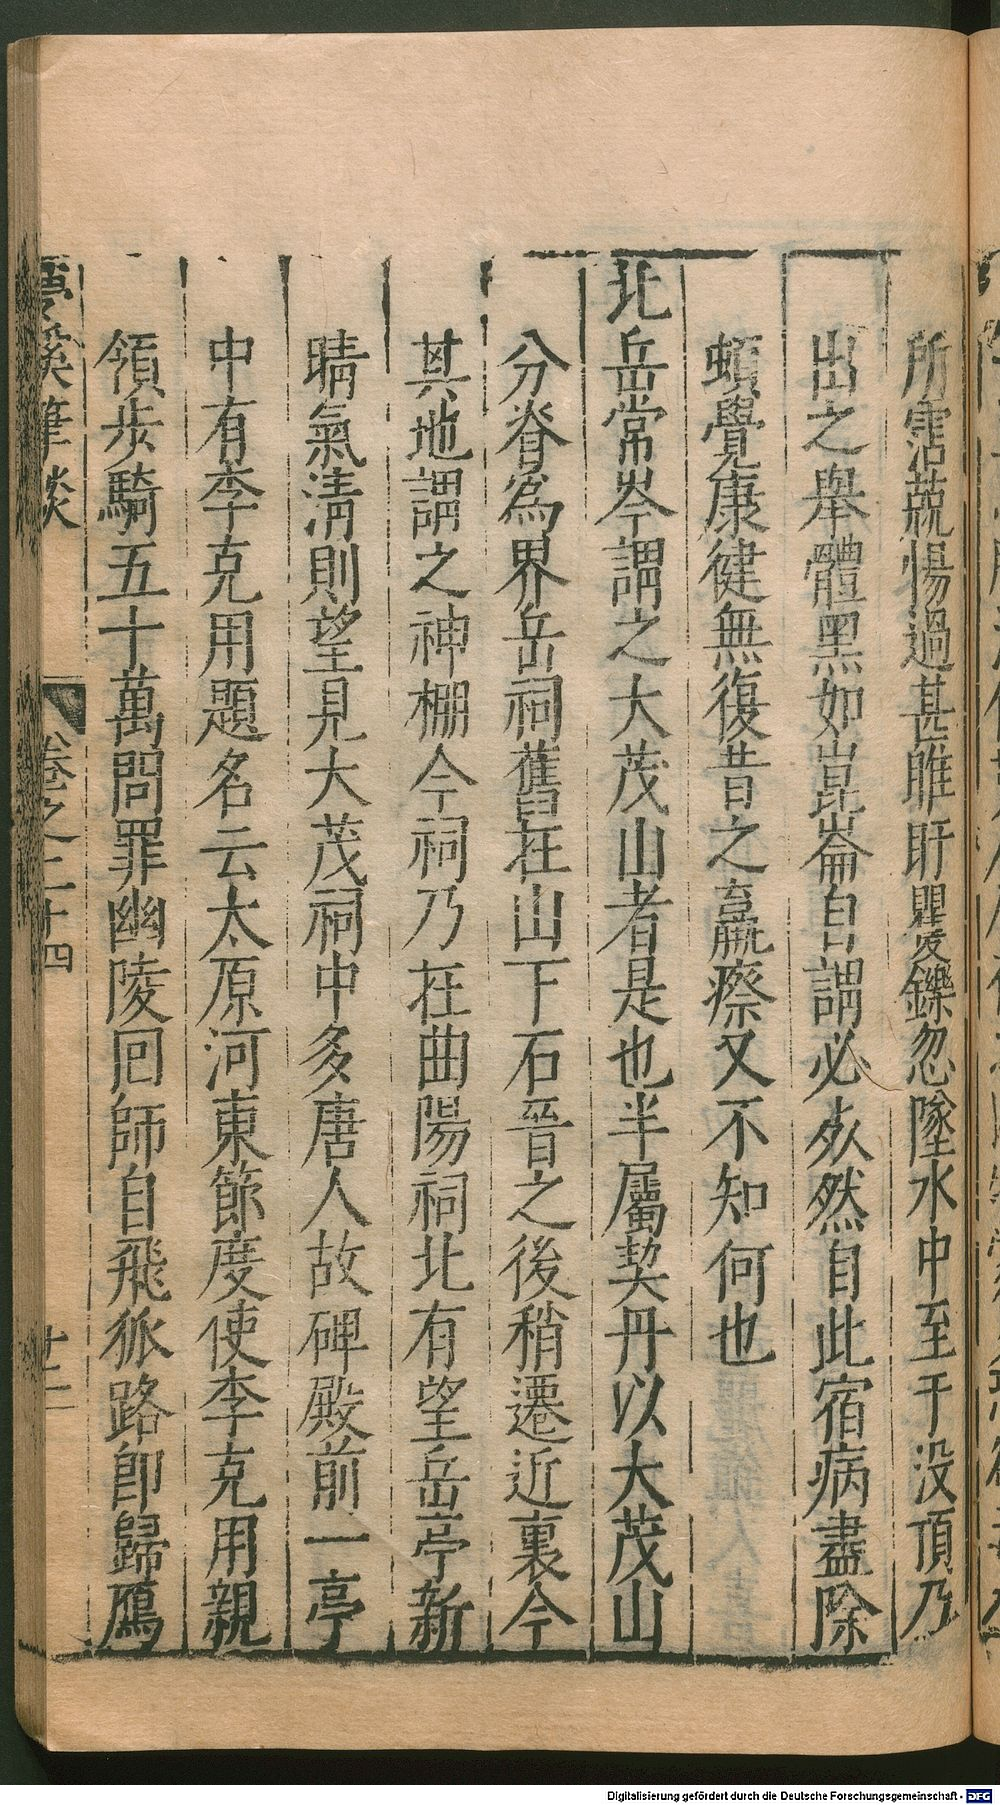 所霑蔬惕過甚睢盱矍鑠忽墜水中至于没頂乃
出之舉體黑如崑崙自謂必㱼然自此宿病盡除
頓覺康健無復昔之羸瘵又不知何也
北岳常岑謂之大茂山者是也半屬契丹以大茂山
分脊爲界岳祠舊在山下石晉之後稍遷近裏今
其地謂之神棚今祠乃在曲陽祠北有望岳亭新
晴氣清則望見大茂祠中多唐人故碑殿前一亭
中有李克用題名云太原河東節度使李克用親
領步騎五十萬問罪幽陵囘師自飛狐路卽歸鴈
夢溪筆談 卷之二十四 十二
Digitalisierung gefördert durch die Deutsche Forschungsgemeinschaft - DFG